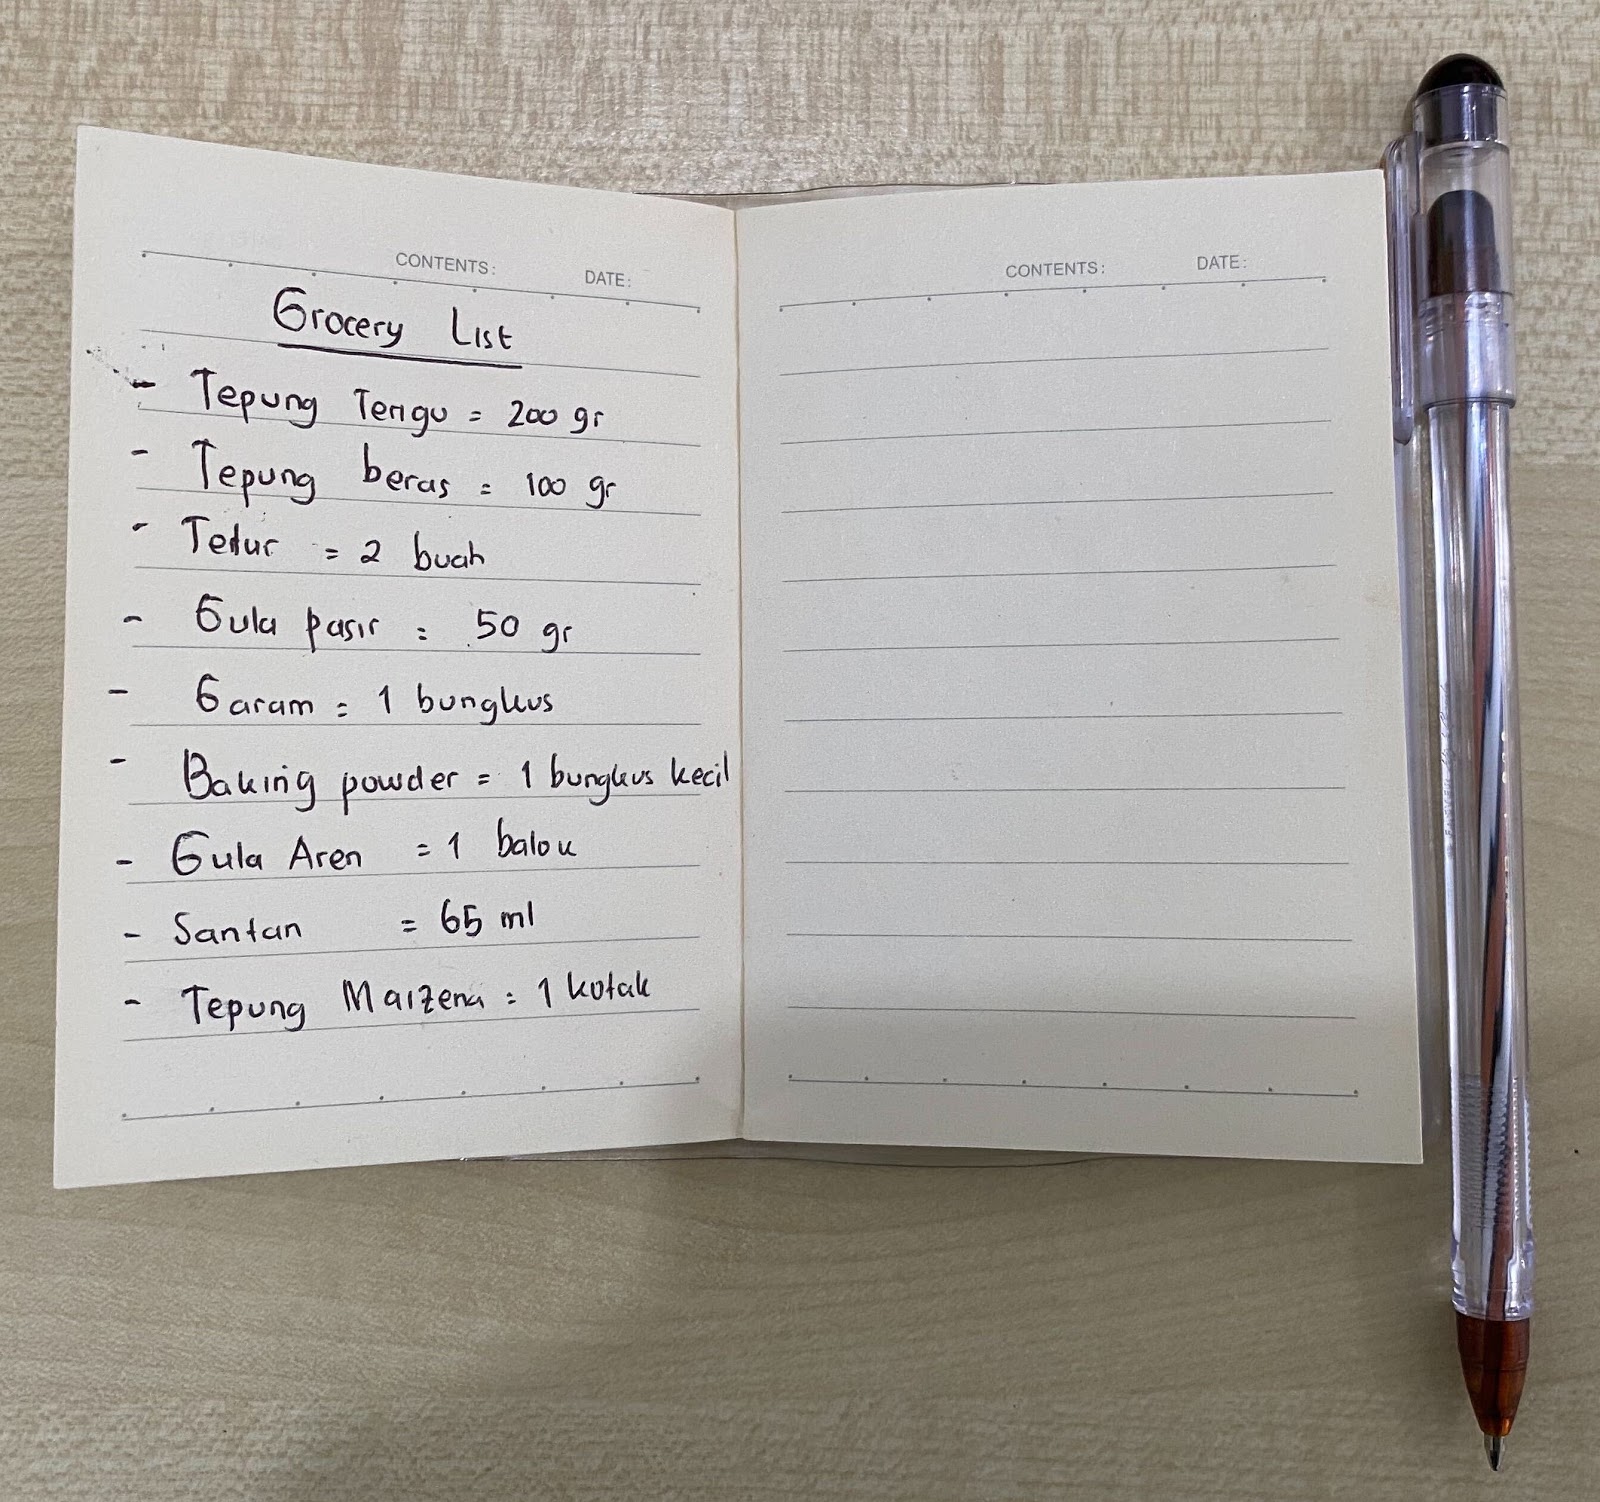 CONTENTS: DATE:
Grocery List
- Tepung Terigu = 200 gr
- Tepung beras = 100 gr
- Telur = 2 buah
- Gula pasir = 50 gr
- Garam = 1 bungkus
- Baking powder = 1 bungkus kecil
- Gula Aren = 1 balok
- Santan = 65 ml
- Tepung Maizena = 1 kotak
CONTENTS: DATE: